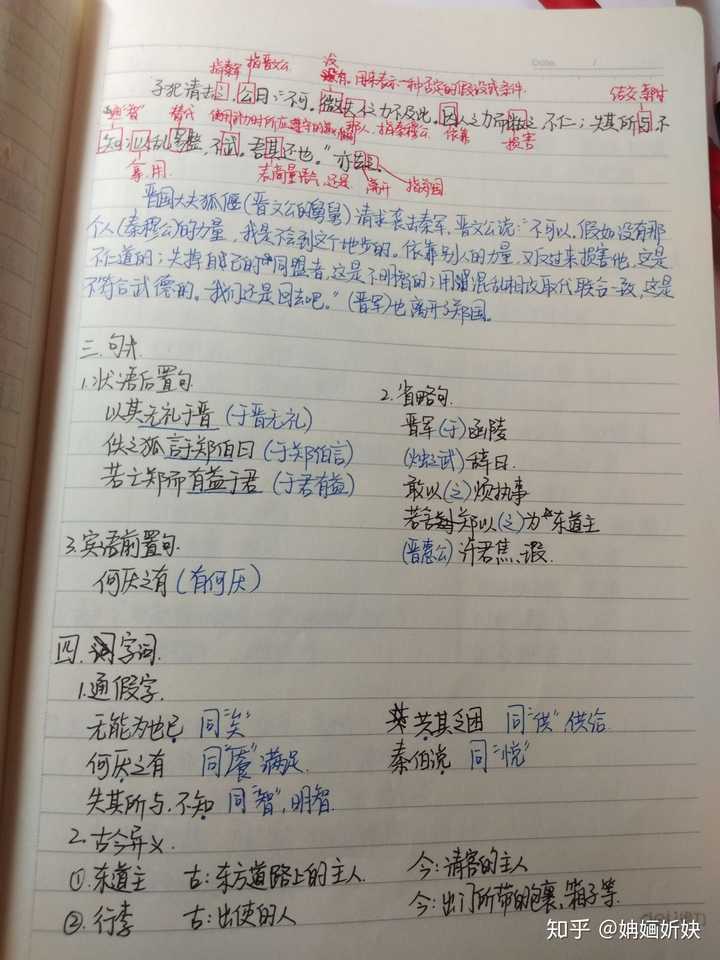 Date
没有,用来表示一种否定的假设或条件
指秦军 指晋文公 结交,亲附
子犯请击之,公曰:“不可,微夫人之力不及此。因人之力而敝之,不仁;失其所与,不
通“智” 替代 使用武力时所应遵守的 那人,指秦穆公 依靠 损害
知;以乱易整,不武。吾其还也。”亦去之。
用 表商量语气,还是 离开 指郑国
晋国大夫狐偃(晋文公的舅舅)请求袭击秦军,晋文公说:“不可以,假如没有那
个人(秦穆公)的力量,我是不会到这个地步的。依靠别人的力量,又反过来损害他,这是
不仁道的;失掉自己的同盟者,这是不明智的;用混乱相攻取代联合一致,这是
不符合武德的。我们还是回去吧。”(晋军)也离开了郑国。
三.句式
1.状语后置句
以其无礼于晋(于晋无礼)
佚之狐言于郑伯曰(于郑伯言)
若亡郑而有益于君(于君有益)
2.省略句
晋军(于)函陵
(烛之武)辞曰
敢以(之)烦执事
若舍郑以(之)为东道主
(晋惠公)许君焦、瑕
3.宾语前置句
何厌之有(有何厌)
四.字词
1.通假字
无能为也已 同“矣” 共其乏困 同“供”供给
何厌之有 同“餍”满足 秦伯说 同“悦”
失其所与,不知 同“智”,明智
2.古今异义
①.东道主 古:东方道路上的主人 今:请客的主人
②.行李 古:出使的人 今:出门所带的包裹、箱子等
知乎 @妠婳妡妜